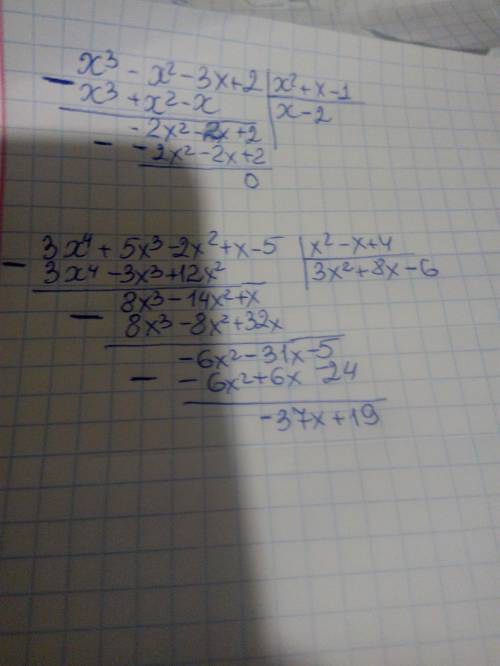 x³ - x² - 3x + 2 | x² + x - 1
- x³ + x² - x | x - 2
- 2x² - 2x + 2
- - 2x² - 2x + 2
0
3x⁴ + 5x³ - 2x² + x - 5 | x² - x + 4
- 3x⁴ - 3x³ + 12x² | 3x² + 8x - 6
8x³ - 14x² + x
- 8x³ - 8x² + 32x
- 6x² - 31x - 5
- - 6x² + 6x 24
- 37x + 19